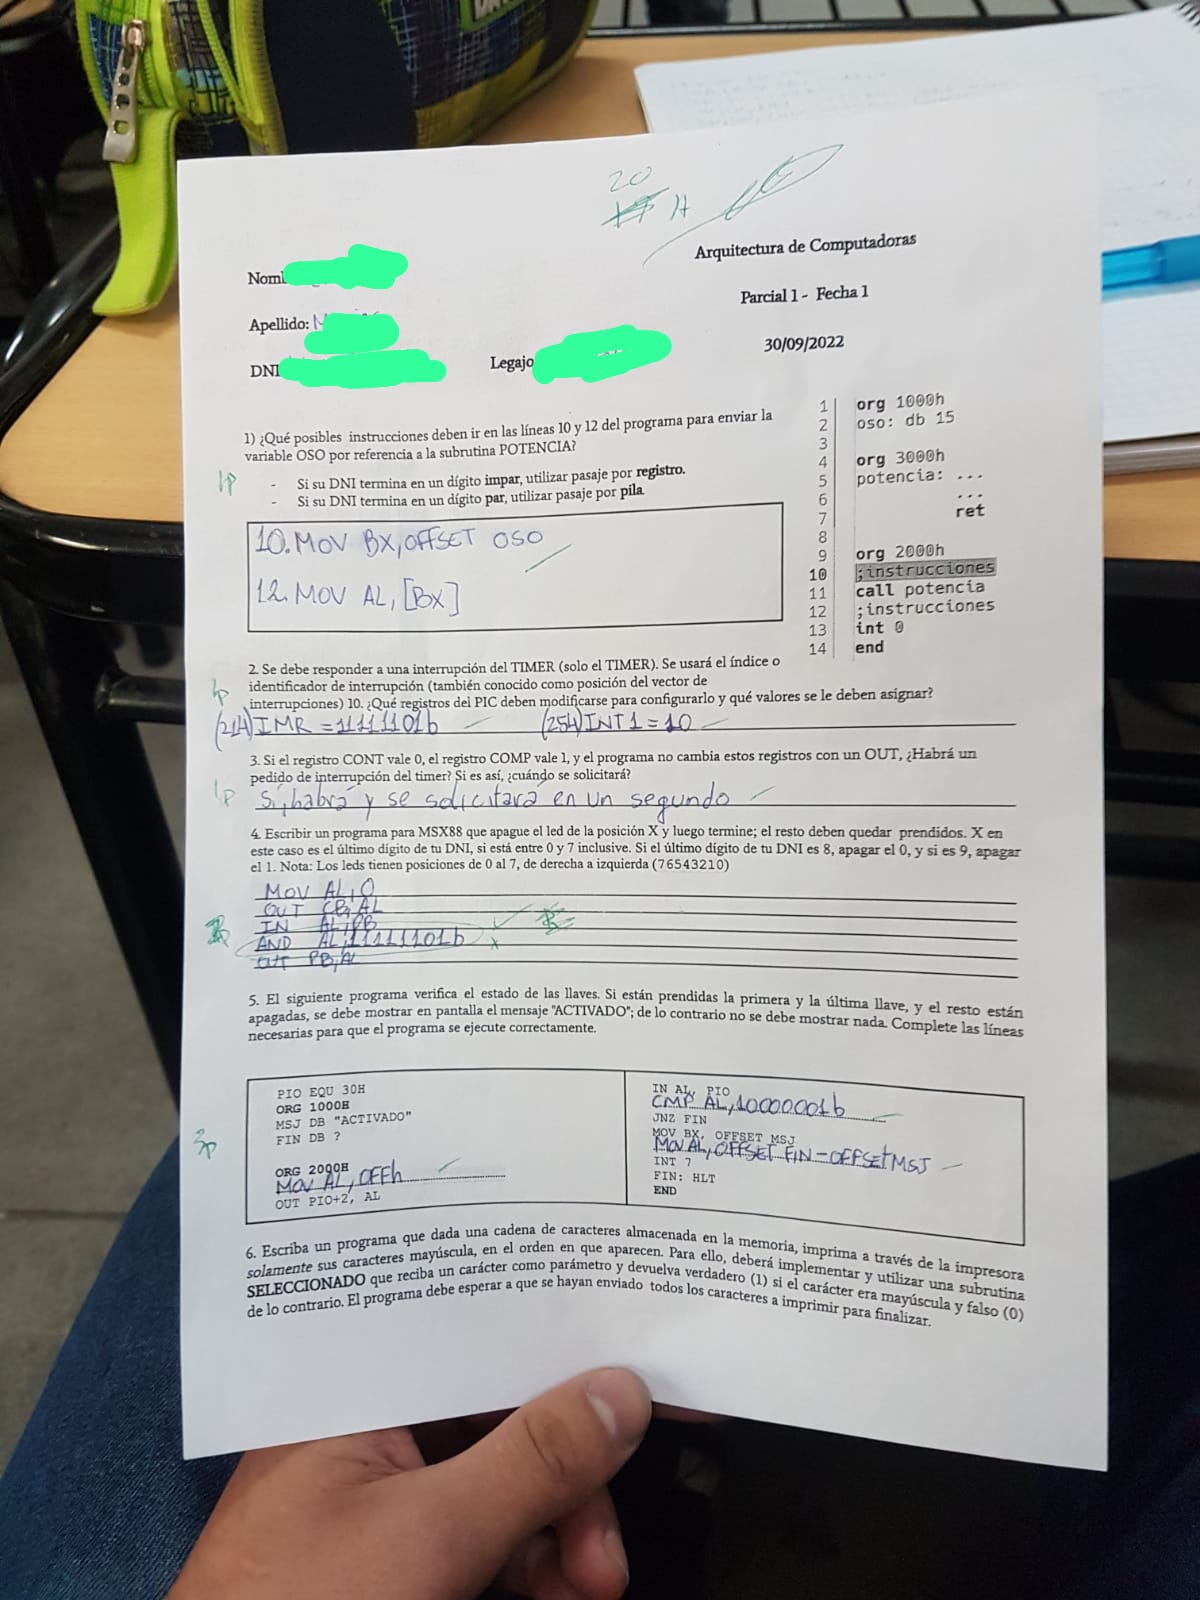 20
Arquitectura de Computadoras
Parcial 1 - Fecha 1
30/09/2022
Apellido:
DNI
Legajo
1) ¿Qué posibles instrucciones deben ir en las líneas 10 y 12 del programa para enviar la
variable OSO por referencia a la subrutina POTENCIA?
1P
- Si su DNI termina en un dígito impar, utilizar pasaje por registro.
- Si su DNI termina en un dígito par, utilizar pasaje por pila.
10. MOV BX, OFFSET OSO
12. MOV AL, [BX]
1 org 1000h
2 oso: db 15
3
4 org 3000h
5 potencia: ...
6 ...
7 ret
8
9 org 2000h
10 ;instrucciones
11 call potencia
12 ;instrucciones
13 int 0
14 end
2. Se debe responder a una interrupción del TIMER (solo el TIMER). Se usará el índice o
identificador de interrupción (también conocido como posición del vector de
interrupciones) 10. ¿Qué registros del PIC deben modificarse para configurarlo y qué valores se le deben asignar?
1P
(21H) IMR = 11111101b (25H) INT1 = 10
3. Si el registro CONT vale 0, el registro COMP vale 1, y el programa no cambia estos registros con un OUT, ¿Habrá un
pedido de interrupción del timer? Si es así, ¿cuándo se solicitará?
1P
Sí, habrá y se solicitará en un segundo
4. Escribir un programa para MSX88 que apague el led de la posición X y luego termine; el resto deben quedar prendidos. X en
este caso es el último dígito de tu DNI, si está entre 0 y 7 inclusive. Si el último dígito de tu DNI es 8, apagar el 0, y si es 9, apagar
el 1. Nota: Los leds tienen posiciones de 0 al 7, de derecha a izquierda (76543210)
MOV AL, 0
OUT CB, AL
IN AL, PB
AND AL, 11111101b
OUT PB, AL
5. El siguiente programa verifica el estado de las llaves. Si están prendidas la primera y la última llave, y el resto están
apagadas, se debe mostrar en pantalla el mensaje "ACTIVADO"; de lo contrario no se debe mostrar nada. Complete las líneas
necesarias para que el programa se ejecute correctamente.
3P
PIO EQU 30H
ORG 1000H
MSJ DB "ACTIVADO"
FIN DB ?
ORG 2000H
MOV AL, 0FFh
OUT PIO+2, AL
IN AL, PIO
CMP AL, 10000001b
JNZ FIN
MOV BX, OFFSET MSJ
MOV AL, OFFSET FIN - OFFSET MSJ
INT 7
FIN: HLT
END
6. Escriba un programa que dada una cadena de caracteres almacenada en la memoria, imprima a través de la impresora
solamente sus caracteres mayúscula, en el orden en que aparecen. Para ello, deberá implementar y utilizar una subrutina
SELECCIONADO que reciba un carácter como parámetro y devuelva verdadero (1) si el carácter era mayúscula y falso (0)
de lo contrario. El programa debe esperar a que se hayan enviado todos los caracteres a imprimir para finalizar.